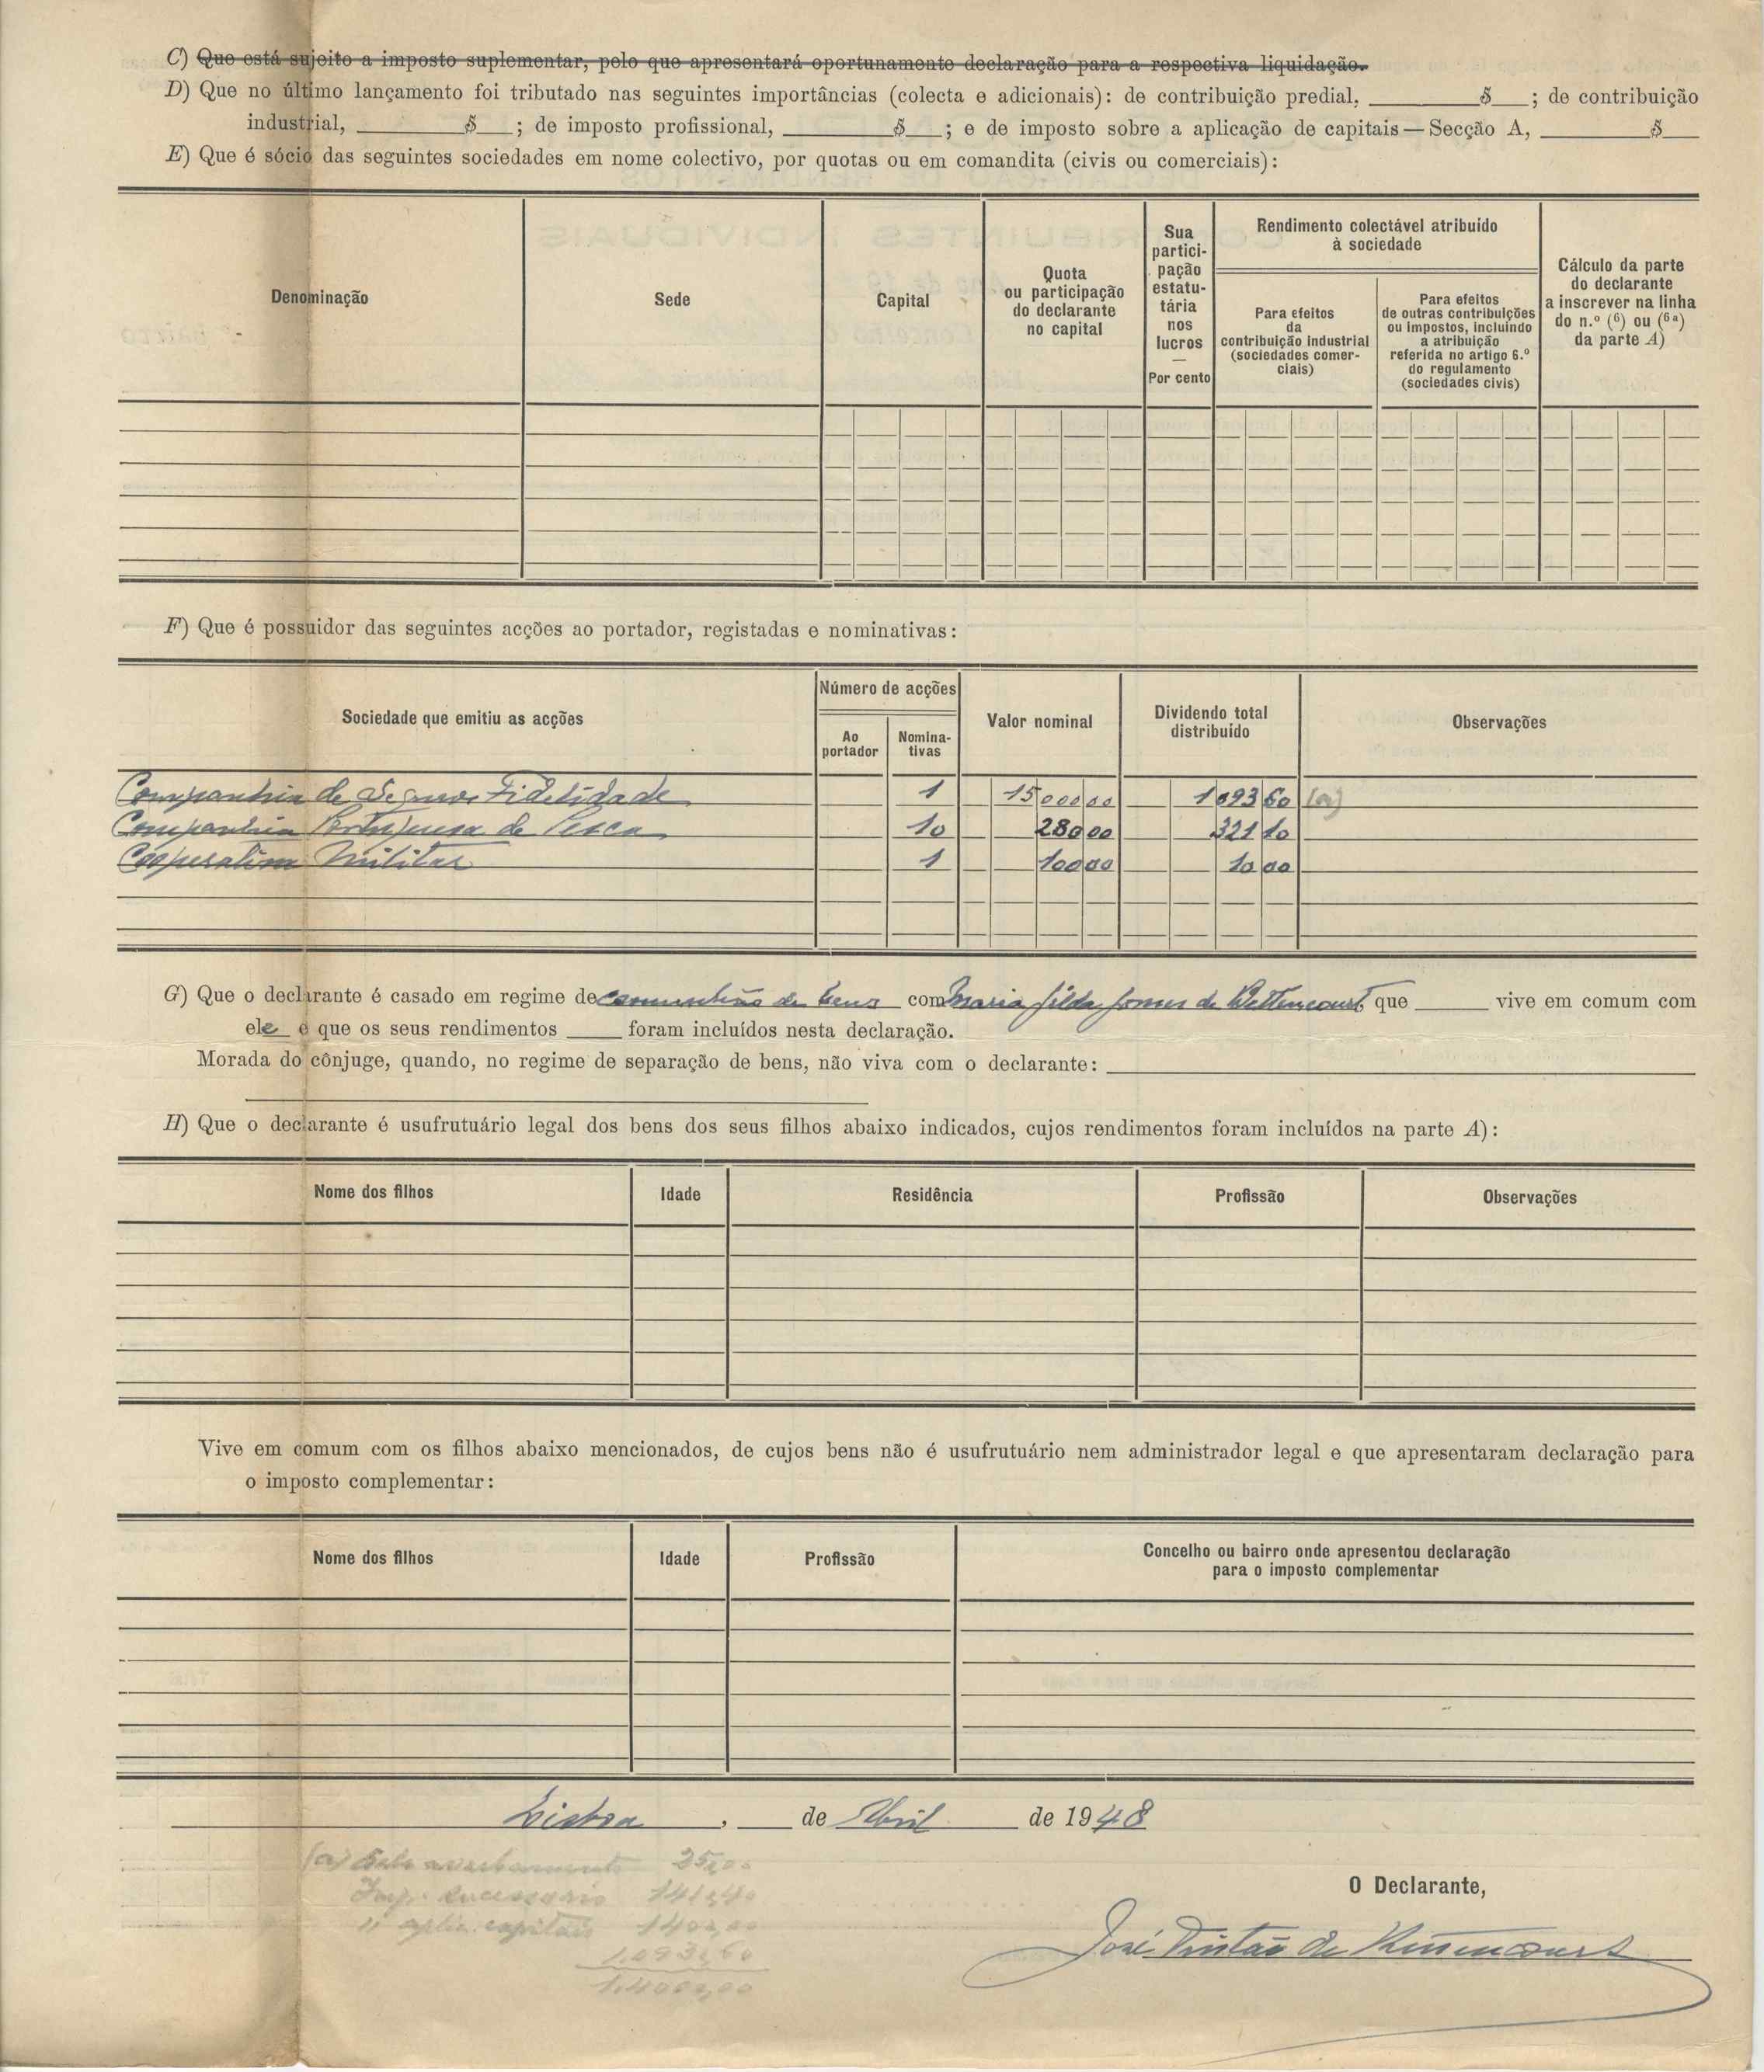 C) Que está sujeito a imposto suplementar, pelo que apresentará oportunamente declaração para a respectiva liquidação.
D) Que no último lançamento foi tributado nas seguintes importâncias (colecta e adicionais): de contribuição predial, $ ; de contribuição
industrial, $ ; de imposto profissional, $ ; e de imposto sobre a aplicação de capitais — Secção A, $
E) Que é sócio das seguintes sociedades em nome colectivo, por quotas ou em comandita (civis ou comerciais):
Denominação
Sede
Capital
Quota
ou participação
do declarante
no capital
Sua
partici-
pação
estatu-
tária
nos
lucros
—
Por cento
Rendimento colectável atribuído
à sociedade
Para efeitos
da
contribuição industrial
(sociedades comer-
ciais)
Para efeitos
de outras contribuições
ou impostos, incluindo
a atribuição
referida no artigo 6.º
do regulamento
(sociedades civis)
Cálculo da parte
do declarante
a inscrever na linha
do n.º (6) ou (6a)
da parte A)
F) Que é possuidor das seguintes acções ao portador, registadas e nominativas:
Sociedade que emitiu as acções
Número de acções
Ao
portador
Nomina-
tivas
Valor nominal
Dividendo total
distribuído
Observações
Companhia de Seguros Fidelidade 1 15 000 00 1 093 60 (a)
Companhia Portuguesa de Pesca 10 280 00 321 10
Cooperativa Militar 1 100 00 10 00
G) Que o declarante é casado em regime de comunhão de bens com Maria Gilda Gomes de Bettencourt que vive em comum com
ele e que os seus rendimentos foram incluídos nesta declaração.
Morada do cônjuge, quando, no regime de separação de bens, não viva com o declarante:
H) Que o declarante é usufrutuário legal dos bens dos seus filhos abaixo indicados, cujos rendimentos foram incluídos na parte A):
Nome dos filhos
Idade
Residência
Profissão
Observações
Vive em comum com os filhos abaixo mencionados, de cujos bens não é usufrutuário nem administrador legal e que apresentaram declaração para
o imposto complementar:
Nome dos filhos
Idade
Profissão
Concelho ou bairro onde apresentou declaração
para o imposto complementar
Lisboa, de Abril de 1948
(a) Selo 25,00
Imp. sucessorio 141,40
" aplic. capitais 140,00
1.093,60
1.400,00
O Declarante,
José Tristão de Bettencourt